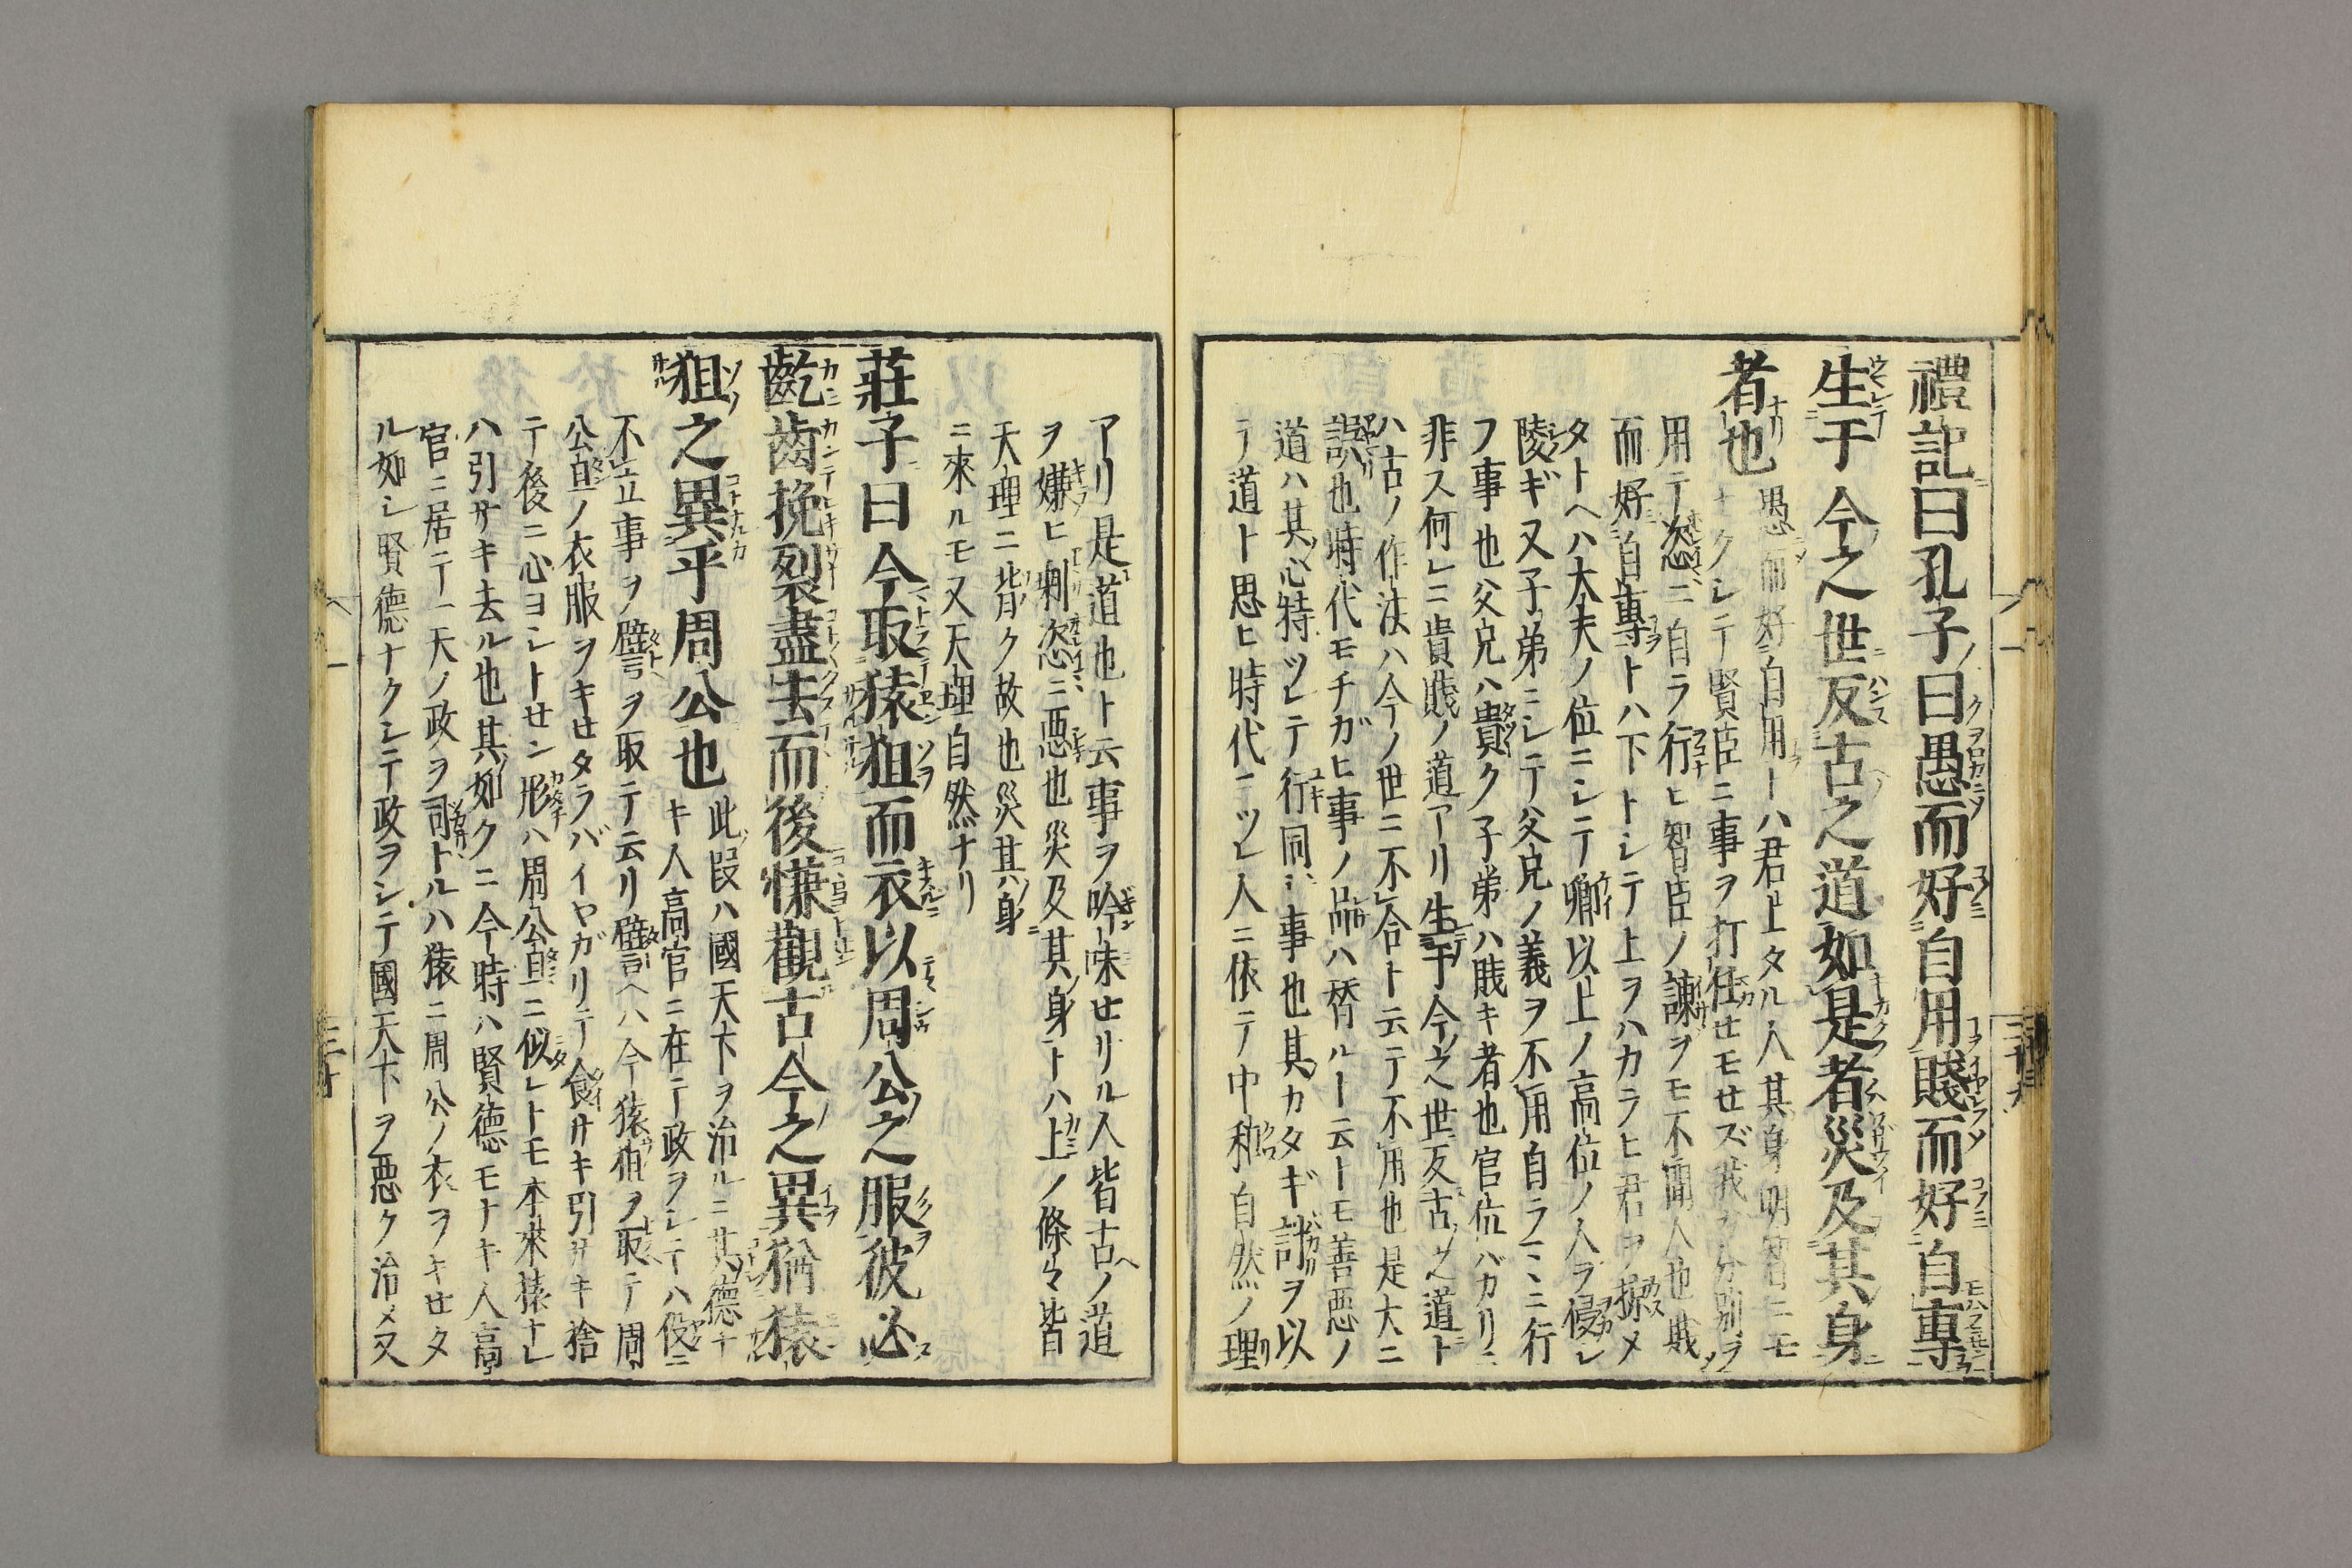 禮記曰孔子曰愚而好自用賤而好自專
生于今之世反古之道如是者災及其身
者也
愚而好自用トハ君上タル人其身明智ニモ
ナクシテ賢臣ニ事ヲ打任セモセズ我カ分別ヲ
用テ恣ニ自ラ行ヒ智臣ノ諫ヲモ不聞人也賎
而好自專トハ下トシテ上ヲハカラヒ君ヲ掠メ
タトヘハ太夫ノ位ニシテ卿以上ノ高位ノ人ヲ侵シ
陵ギ又子弟ニシテ父兄ノ義ヲ不用自ラ恣ニ行
フ事也父兄ハ貴ク子弟ハ賎キ者也官位バカリニ
非ス何レニ貴賎ノ道アリ生于今之世反古之道ト
ハ古ノ作法ハ今ノ世ニ不合ト云テ不用也是大ニ
誤也時代モチガヒ事ノ品ハ替ルト云トモ善悪ノ
道ハ其心持ツレテ行同ジ事也其カタギ計ヲ以
テ道ト思ヒ時代ニツレ人ニ依テ中和自然ノ理
アリ是道也ト云事ヲ吟味セリル人皆古ノ道
ヲ嫌ヒ剰恣ニ悪也災及其身トハ上ノ條々皆
天理ニ背ク故也災其身
ニ來ルモ又天理自然ナリ
莊子曰今取猿狙而衣以周公之服彼必
齕齒挽裂盡去而後慊觀古今之異猶猿
狙之異乎周公也
此段ハ國天下ヲ治ルニ其德ナ
キ人高官ニ在テ政ヲシテハ役ニ
不立事ヲ譬ヲ取テ云リ譬ヘハ今猿狙ヲ取テ周
公旦ノ衣服ヲキセタラバイヤガリテ食サキ引サキ捨
テ後ニ心ヨシトセン形ハ周公旦ニ似レトモ本來猿ナレ
ハ引サキ去ル也其如クニ今時ハ賢德モナキ人高
官ニ居テ一天ノ政ヲ司トルハ猿ニ周公ノ衣ヲキセタ
ル如シ賢德ナクシテ政ヲシテ國天下ヲ悪ク治メ又